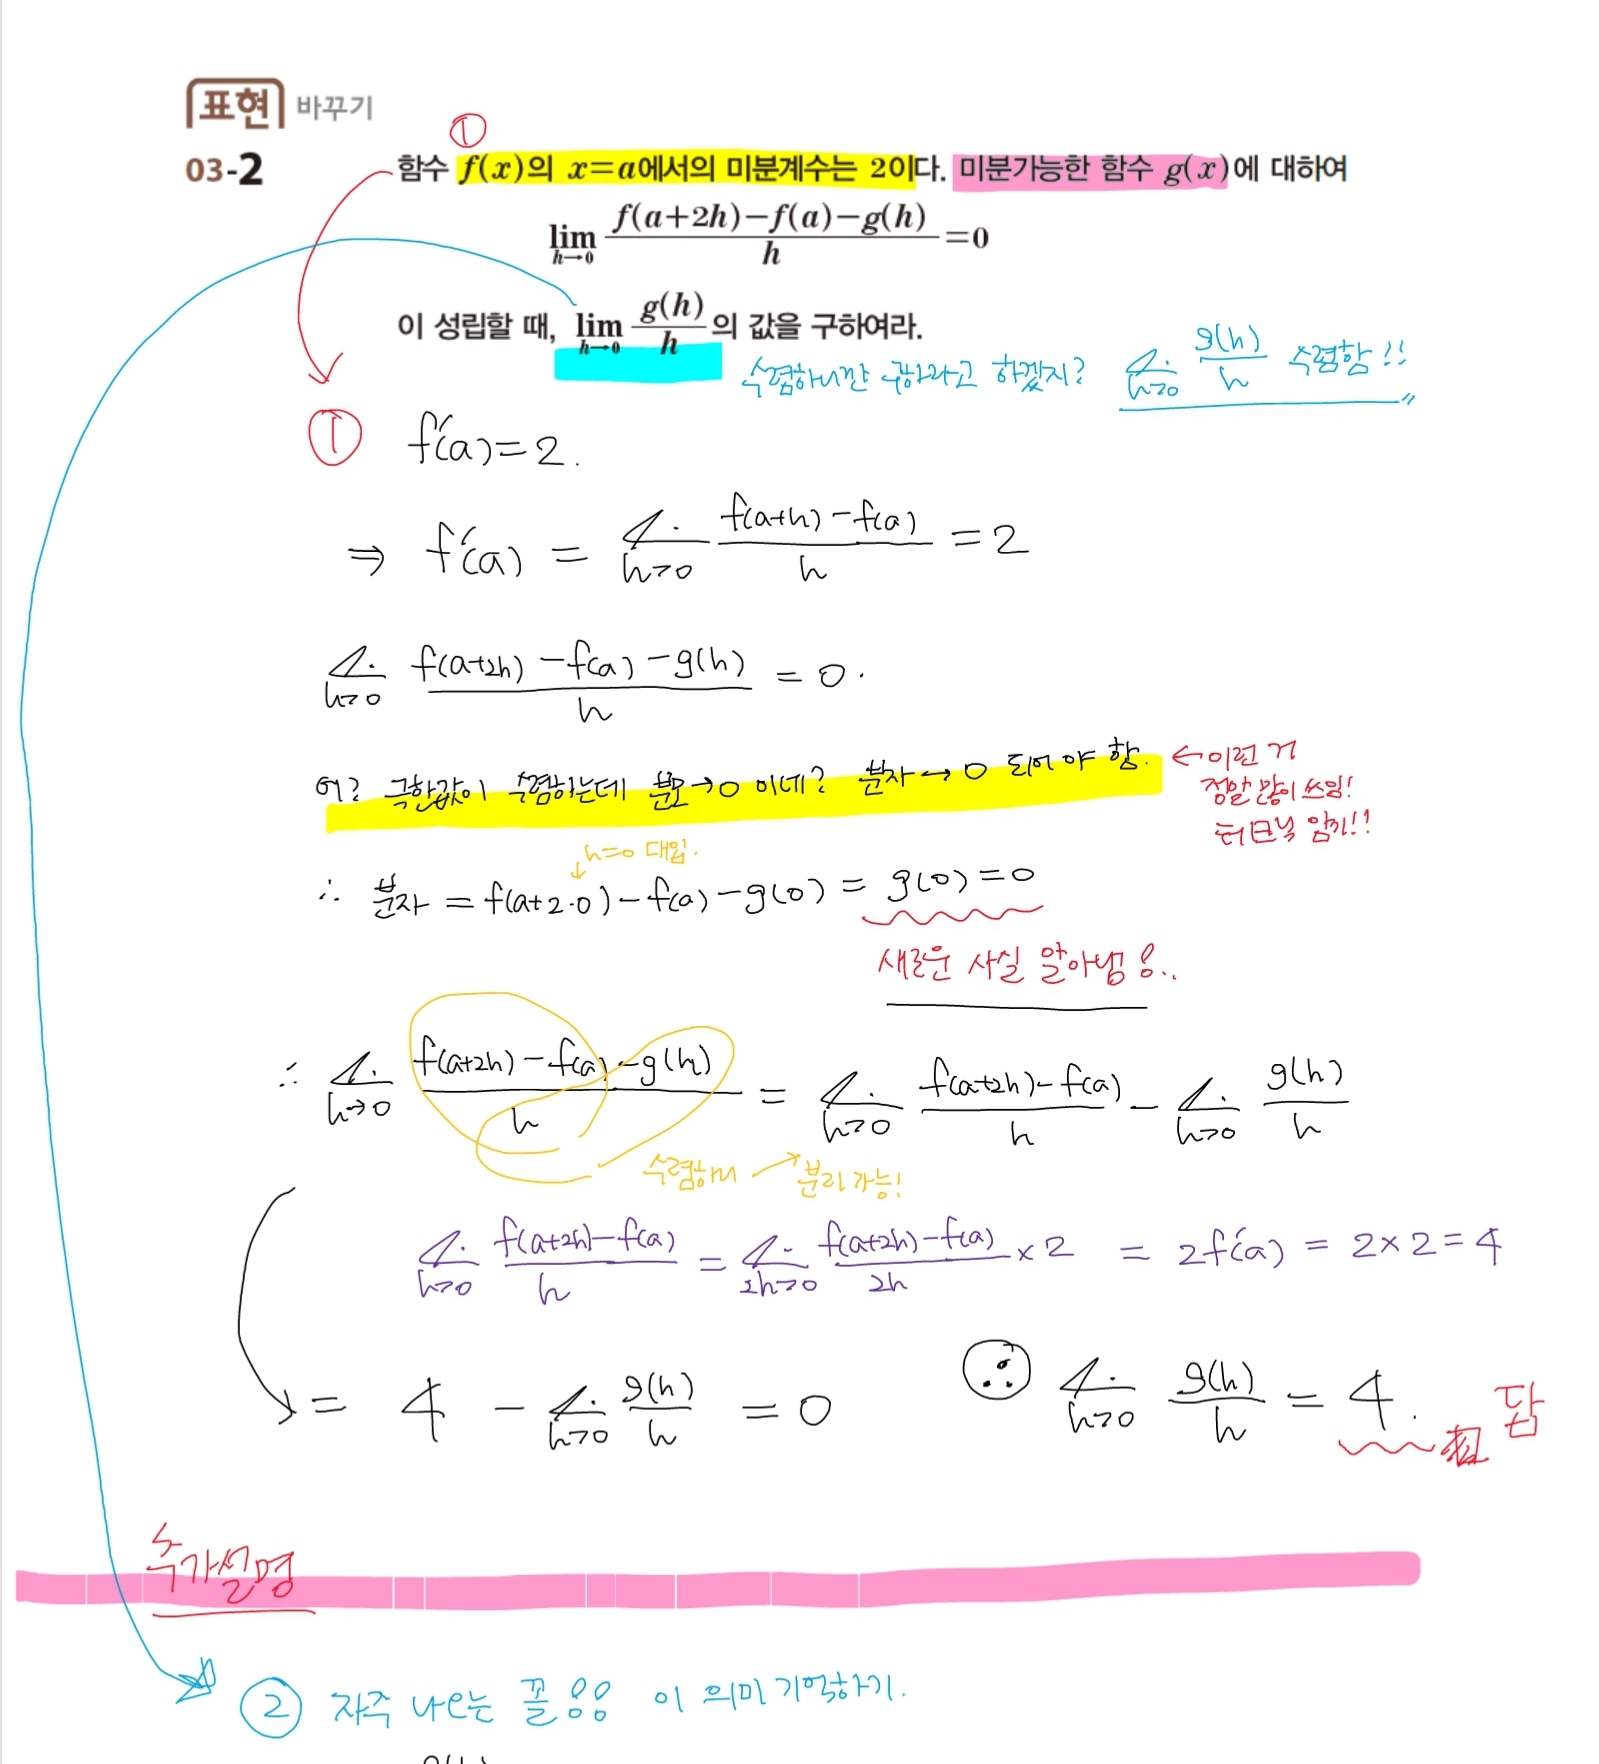 표현 바꾸기
①
03-2 함수 f(x)의 x=a에서의 미분계수는 2이다. 미분가능한 함수 g(x)에 대하여
lim_{h→0} (f(a+2h)-f(a)-g(h))/h =0
이 성립할 때, lim_{h→0} g(h)/h 의 값을 구하여라.
수렴하니깐 구하라고 하겠지? lim_{h→0} g(h)/h 수렴함!!
① f'(a)=2.
⇒ f'(a) = lim_{h→0} (f(a+h)-f(a))/h = 2
lim_{h→0} (f(a+2h)-f(a)-g(h))/h = 0.
어? 극한값이 수렴하는데 분모→0 이네? 분자→0 되어야 함. ← 이런 거
정말 많이 쓰임!
암기!!
h=0 대입.
∴ 분자 = f(a+2·0)-f(a)-g(0) = g(0)=0
새로운 사실 알아냄!..
∴ lim_{h→0} (f(a+2h)-f(a)-g(h))/h = lim_{h→0} (f(a+2h)-f(a))/h - lim_{h→0} g(h)/h
분리 가능!
lim_{h→0} (f(a+2h)-f(a))/h = lim_{2h→0} (f(a+2h)-f(a))/2h ×2 = 2f'(a) = 2×2=4
= 4 - lim_{h→0} g(h)/h = 0 ∴ lim_{h→0} g(h)/h = 4. 답
추가설명
② 자주 나오는 꼴 이 의미 기억하기.